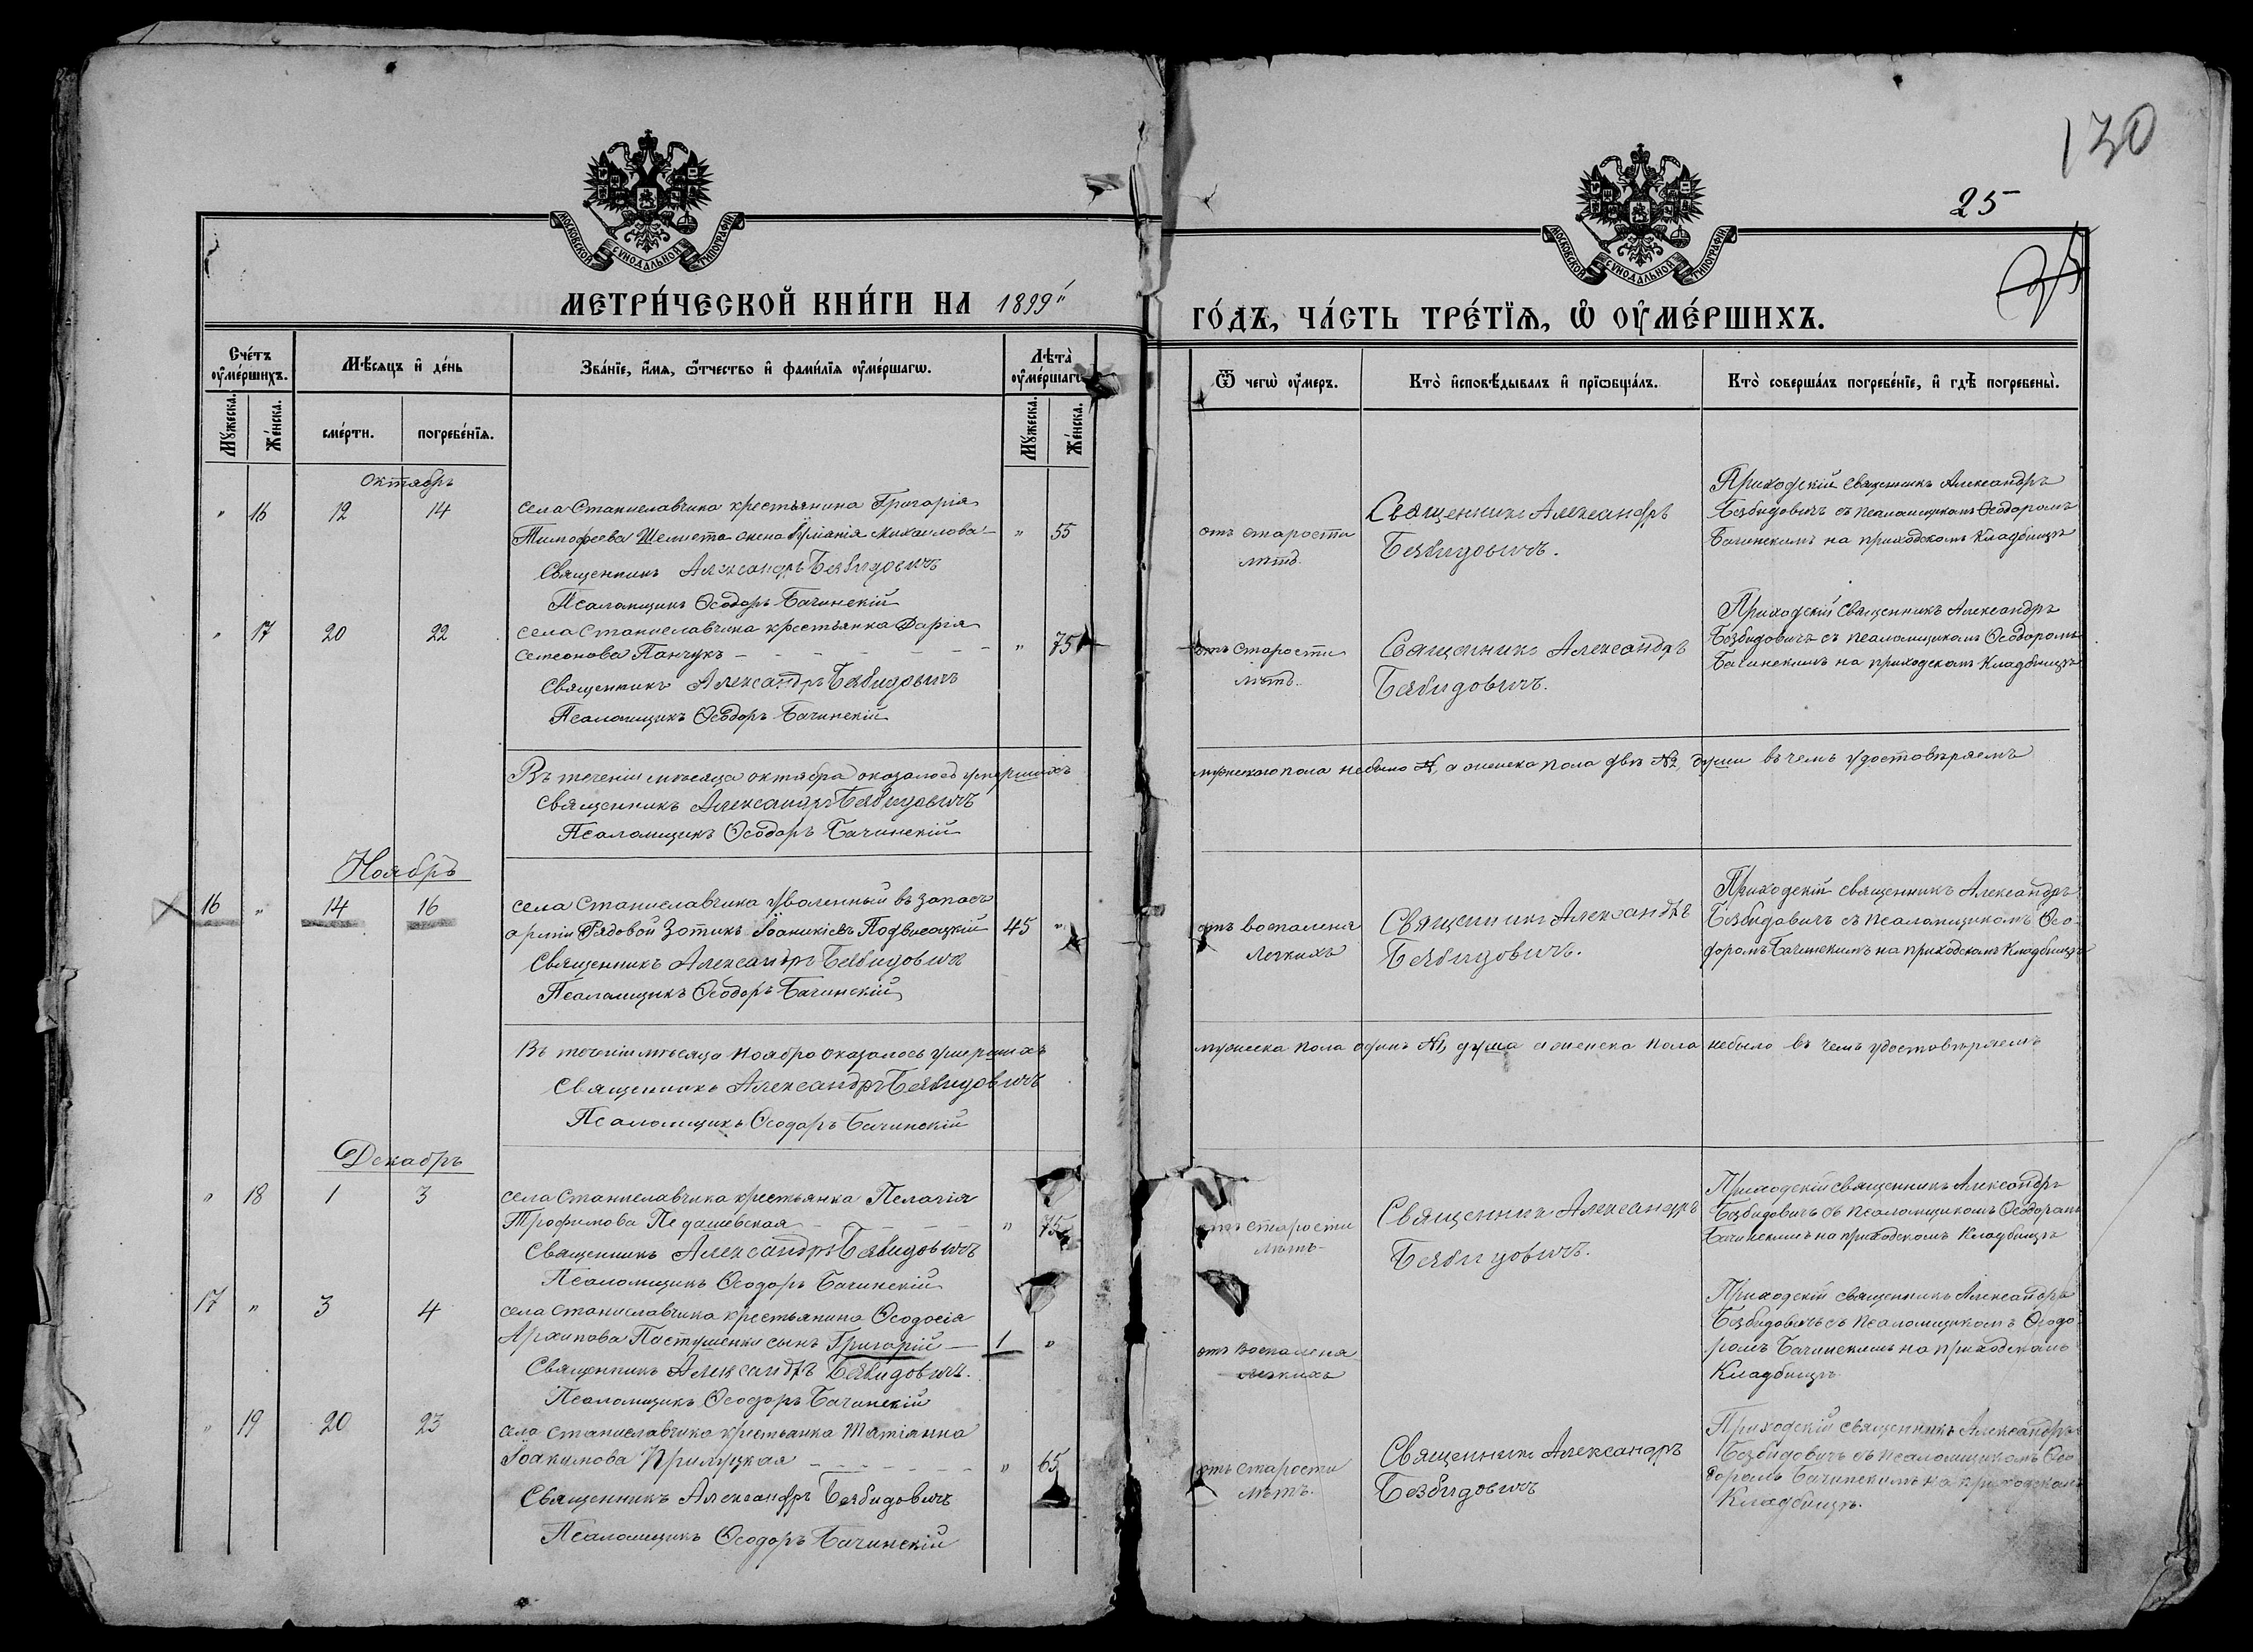 130
25
МОСКОВСКОЙ СѴНОДАЛЬНОЙ ТИПОГРАФІИ
МОСКОВСКОЙ СѴНОДАЛЬНОЙ ТИПОГРАФІИ
МЕТРИ́ЧЕСКОЙ КНИ́ГИ НА 1899
ГО́ДЪ, ЧА́СТЬ ТРЕ́ТЇѦ, Ѡ ОУ҆МЕ́РШИХЪ.
Сче́тъ оу҆ме́ршихъ.
Мѣ́сяцъ и҆ де́нь
Зва́нїе, и҆́мѧ, ѻ҆́тчество и҆ фами́лїѧ оу҆ме́ршагѡ.
Лѣта̀ оу҆ме́ршагѡ
Ѿ чегѡ̀ оу҆́меръ.
Кто̀ и҆сповѣ́дывалъ и҆ прїѡбща́лъ.
Кто̀ соверша́лъ погребе́нїе, и҆ гдѣ̀ погребены̀.
Мꙋ́жеска.
Же́нска.
сме́рти.
погребе́нїѧ.
Мꙋ́жеска.
Же́нска.
Октябрь
" 16 12 14
села Станиславчика крестьянина Григорія
Тимофеева Шелиста жена Михаилова " 55
Священникъ Александръ Безвидовичъ
Псаломщикъ Ѳеодоръ Бачинскій
отъ старости
лѣтъ.
Священникъ Александръ
Безвидовичъ.
Приходскій священникъ Александръ
Безвидовичъ съ псаломщикомъ Ѳеодоромъ
Бачинскимъ на приходскомъ кладбищѣ
" 17 20 22
села Станиславчика крестьянка Дарія
Семеонова Панчукъ " 75
Священникъ Александръ Безвидовичъ
Псаломщикъ Ѳеодоръ Бачинскій
отъ старости
лѣтъ.
Священникъ Александръ
Безвидовичъ.
Приходскій священникъ Александръ
Безвидовичъ съ псаломщикомъ Ѳеодоромъ
Бачинскимъ на приходскомъ кладбищѣ
Въ теченіи мѣсяца октября оказалось умершихъ
мужескаго пола небыло а женска пола двѣ №2, души въ чемъ удостовѣряемъ
Священникъ Александръ Безвидовичъ
Псаломщикъ Ѳеодоръ Бачинскій
Ноябрь
16 " 14 16
села Станиславчика уволенный въ запасъ
арміи Рядовой Зотикъ Іоаникіевъ Подвисоцкій 45 "
Священникъ Александръ Безвидовичъ
Псаломщикъ Ѳеодоръ Бачинскій
отъ воспаленія
легкихъ
Священникъ Александръ
Безвидовичъ.
Приходскій священникъ Александръ
Безвидовичъ съ псаломщикомъ Ѳео-
доромъ Бачинскимъ на приходскомъ кладбищѣ
Въ теченіи мѣсяца ноября оказалось умершихъ
мужеска пола одинъ №1, душа а женска пола небыло въ чемъ удостовѣряемъ
Священникъ Александръ Безвидовичъ
Псаломщикъ Ѳеодоръ Бачинскій
Декабрь
" 18 1 3
села Станиславчика крестьянка Пелагія
Трофимова Педашевская " 75
Священникъ Александръ Безвидовичъ
Псаломщикъ Ѳеодоръ Бачинскій
отъ старости
лѣтъ
Священникъ Александръ
Безвидовичъ.
Приходскій священникъ Александръ
Безвидовичъ съ псаломщикомъ Ѳеодоромъ
Бачинскимъ на приходскомъ кладбищѣ
17 " 3 4
села Станиславчика крестьянина Ѳеодосія
Архипова Пастушенки сынъ Григорій 1 "
Священникъ Александръ Безвидовичъ.
Псаломщикъ Ѳеодоръ Бачинскій
отъ воспаленія
легкихъ
Приходскій священникъ Александръ
Безвидовичъ съ псаломщикомъ Ѳеодо-
ромъ Бачинскимъ на приходскомъ
кладбищѣ
" 19 20 23
села Станиславчика крестьянка Татіанна
Іоакимова Прилуцкая " 65
Священникъ Александръ Безвидовичъ
Псаломщикъ Ѳеодоръ Бачинскій
отъ старости
лѣтъ.
Священникъ Александръ
Безвидовичъ
Приходскій священникъ Александръ
Безвидовичъ съ псаломщикомъ Ѳео-
доромъ Бачинскимъ на приходскомъ
кладбищѣ.